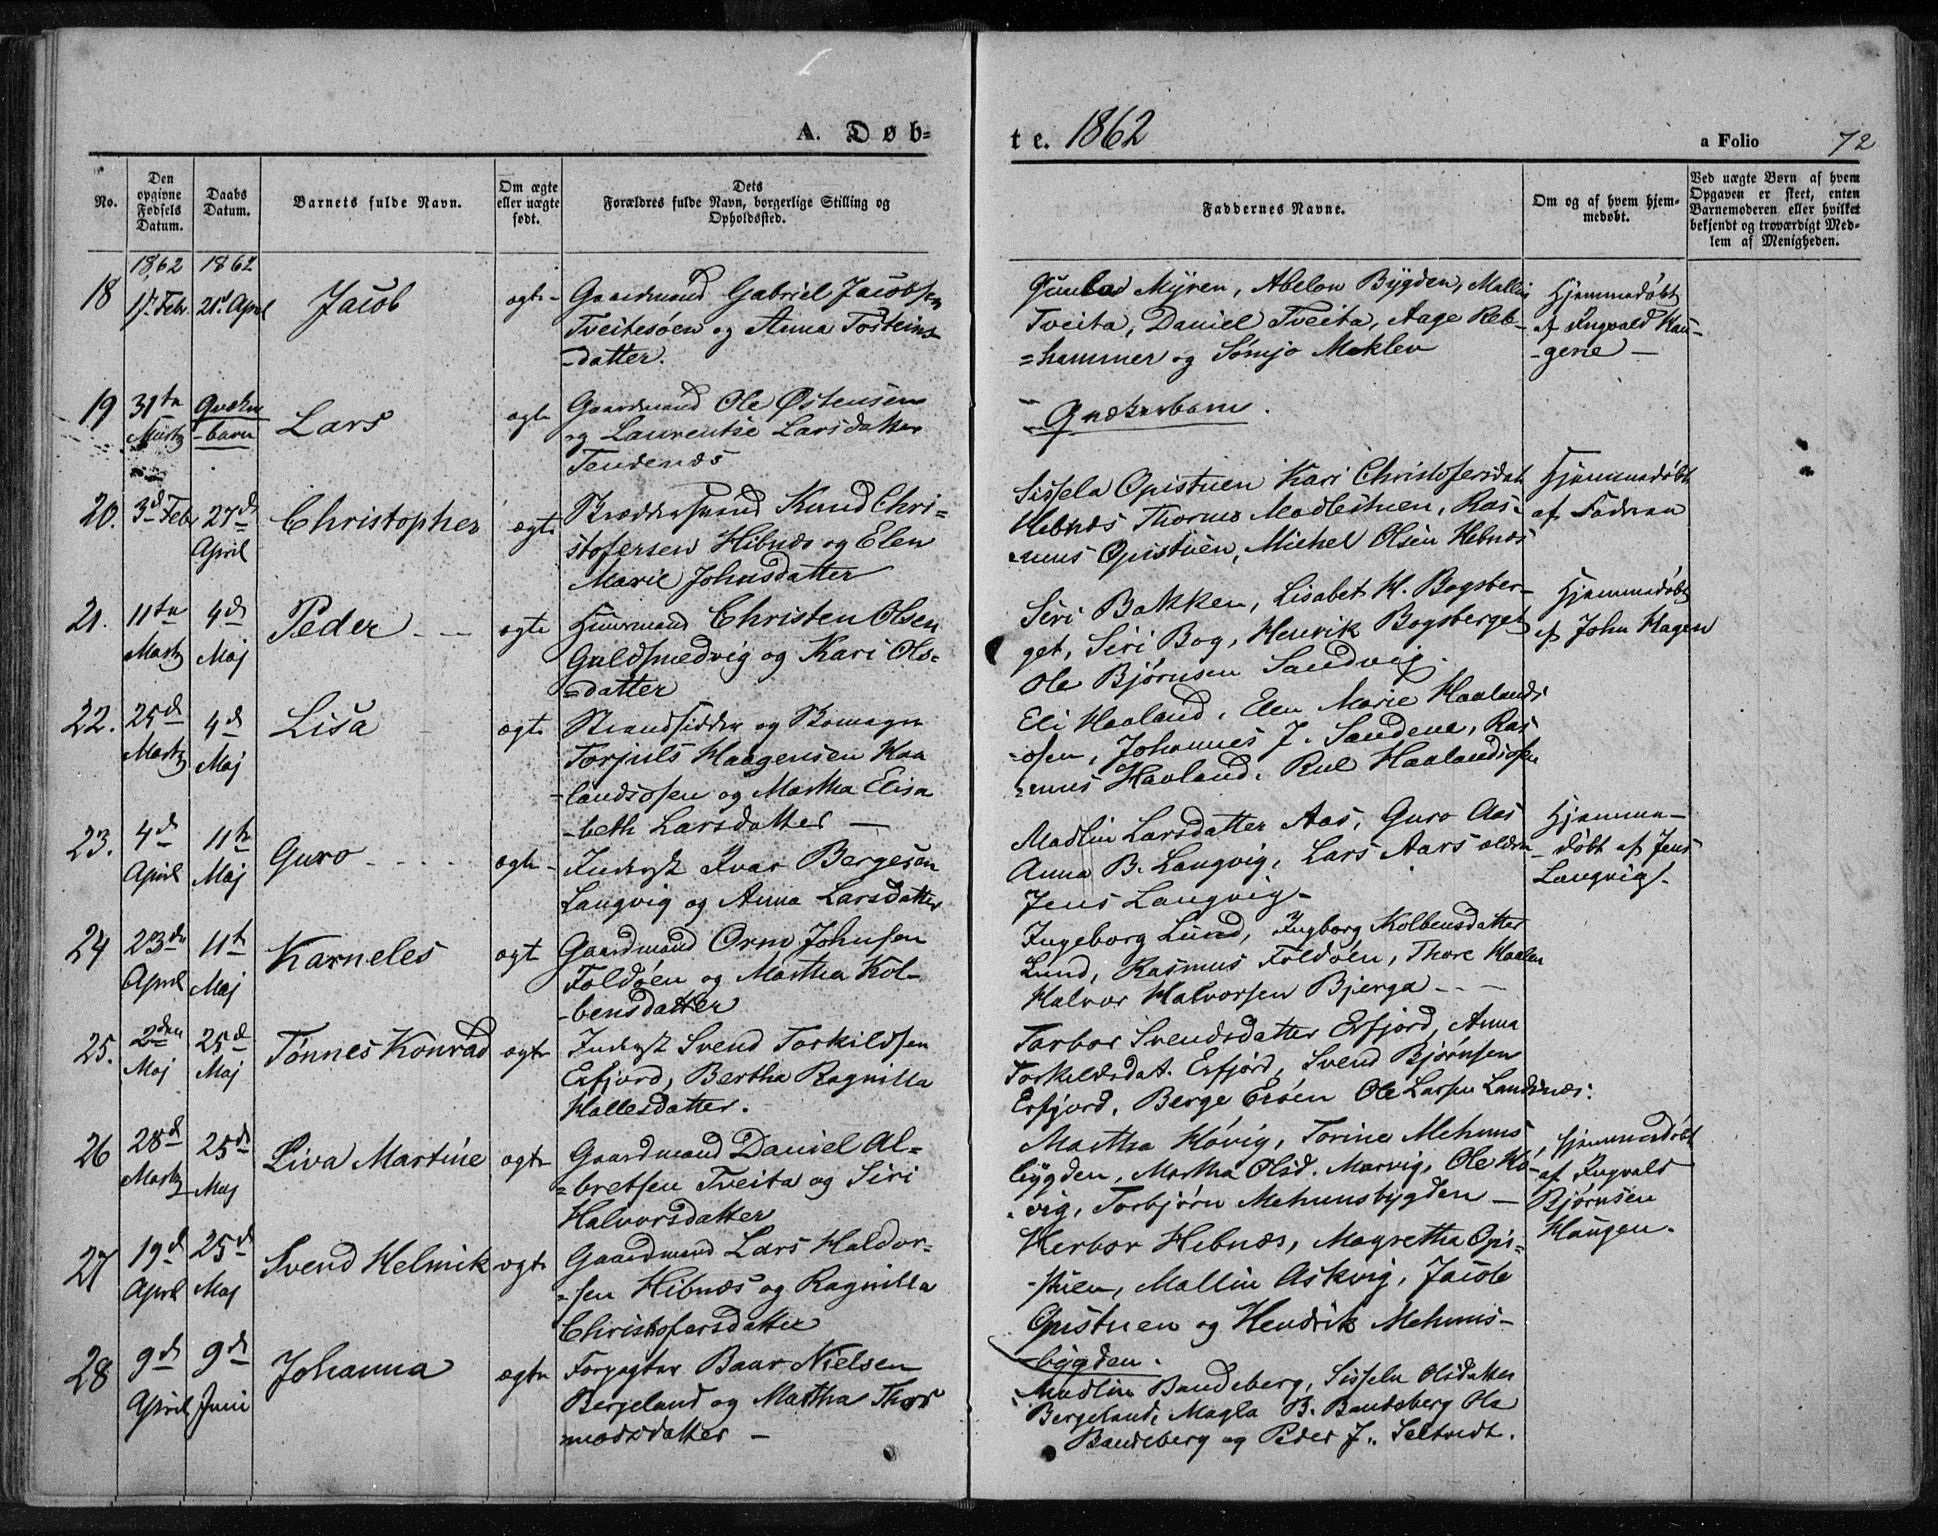 A. Døb=
te. 1862
a Folio 72
No.
Den opgivne Fødsels Datum.
Daabs Datum.
Barnets fulde Navn.
Om ægte eller uægte født.
Dets Forældres fulde Navn, borgerlige Stilling og Opholdssted.
Faddernes Navne.
Om og af hvem hjemmedøbt.
Ved uægte Børn af hvem Opgaven er skeet, enten Barnemoderen eller hvilket bekjendt og troværdigt Medlem af Menigheden.
1862 1862
18 Febr. 21d April Jacob ægte
Gaardmand Gabriel Jacobsen
Tveitesøen og Anna Tosteins
-datter.
Myren, Abelon Bygden, Mallin
Tveita, Daniel Tveita, Aage Reb-
=hammer og Maklev
Hjemmedøbt
af Ingvald Hau-
-gene
19 31te Martz Qvæker
-barn Lars ægte
Gaardmand Ole Østensen
og Laurentse Larsdatter
Tendenæs
Qvækerbarn.
20. 3d Feb 27d April Christopher ægte
Knud Chri-
stofersen Hibnæs og Elen
Marie Johnsdatter
Sissela Opistuen Kari Christofersdat
Hebnæs Thormo Madlestuen, Ras-
mus Opistuen, Michel Olsen Hebnæs
Hjemmedøbt
af Faderen
21. 11te Martz 4d Maj Peder ægte
Huusmand Christen Olsen
Guldsmedvig og Kari Ols-
=datter
Siri Bakken, Lisabet H. Bogsber-
get, Siri Bog, Henrik Bogsberget
Ole Bjørnsen Sandvig.
Hjemmedøbt
af John Hagen
22. 25d Martz 4d Maj Lisa ægte
Strandsidder og Skomager
Torjuls Haagensen Haa
-landsosen og Martha Elisa
-beth Larsdatter
Eli Haaland, Elen Marie Haalands
-osen, Johannes J. Sandene, Ras
=mus Haaland, Haalandsosen
23. 4d April 11te Maj Guro ægte
Inderst Ivar Bergesen
Langvig og Anna Larsdatter
Madlin Larsdatter Aas, Guro Aas
Anna B. Langvig, Lars Aars
Jens Langvig
Hjemme-
-døbt af Jens
Langvig
24 23de April 11te Maj Karneles ægt
Gaardmand Orm Johnsen
Foldøen og Martha Kol-
-bensdatter
Ingeborg Lund, Ingborg Kolbensdatter
Lund, Rasmus Foldøen, Thore
Halvor Halvorsen Bjerga
25. 2den Maj 25d Maj Tønnes Konrad ægte
Inderst Svend Torkildsen
Erfjord, Bertha Ragnilla
Hallesdatter.
Torbor Svendsdatter Erfjord, Anna
Torkeldsdat. Erfjord, Svend Bjørnsen
Erfjord, Berge Erøen Ole Larsen Landsnæs.
26 28d Martz 25d Maj Liva Martine ægte
Gaardmand Daniel Al-
=bretsen Tveita og Siri
Halvorsdatter
Martha Høvig, Torine Mehuus
bygden, Martha Olsd. Marvig, Ole Hø-
-vig, Torbjørn Mehuusbygden
Hjemmedøbt
af Ingvald
Bjørnsen
Haugen.
27 19d April 25d Maj Svend Helmik ægte
Gaardmand Lars Haldor-
-sen Hibnæs og Ragnilla
Christofersdatter
Herbor Hebnæs, Magretha Opi-
-stuen, Mallin Askvig, Jacob
Opistuen og Hendrik Mehuus-
-bygden.
28 9d April 9d Juni Johanna ægte
Forpagter Baar Nielsen
Bergeland og Martha Thor
modsdatter
Madlin Bandeberg, Sissela Olsdatter
Bergeland, Magla B. Bandeberg Ole
Bandeberg og Peder J. Seltvedt.